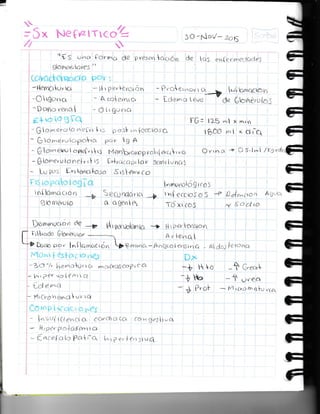 Sx NeFRITICO
30-NOV-2015
"Es una forma de presentación de las enfermedades
glomerulares"
Caracterizado por:
-Hematuria - Hipertensión - Proteinuria → Inflamación
-Oliguria - Azotemia - Edema leve de Glomérulos
-Daño renal - Oliguria
Etiología FG= 125 ml x min
- Glomerulonefritis postinfecciosa 1800 ml x día
- Glomerulopatía por IgA
- Glomerulonefritis Membranoproliferativa Orina →
- Glomerulonefritis Extracapilar
- Lupus Eritematoso Sistémico
Fisiopatología Inmunológicos
Inflamación → Secundaria → Infecciosos → Retención Agua
Glomérulo a agentes Tóxicos y Sodio
Disminución de → Hipervolemia → Hipertensión
Filtrado Glomerular Arterial
Daño por Inflamación → Renina - Angiotensina - Aldosterona
Manifestaciones Dx
-30% hematuria macroscópica - ↓ Hto - ↑ Creat
- hipervolemia - ↓ Hb - ↑ urea
- Edema - ↓ Prot - Microhematuria
- Microhematuria
Complicaciones
- Insuficiencia cardiaca congestiva
- Hiperpotasemia
- Encefalopatía hipertensiva